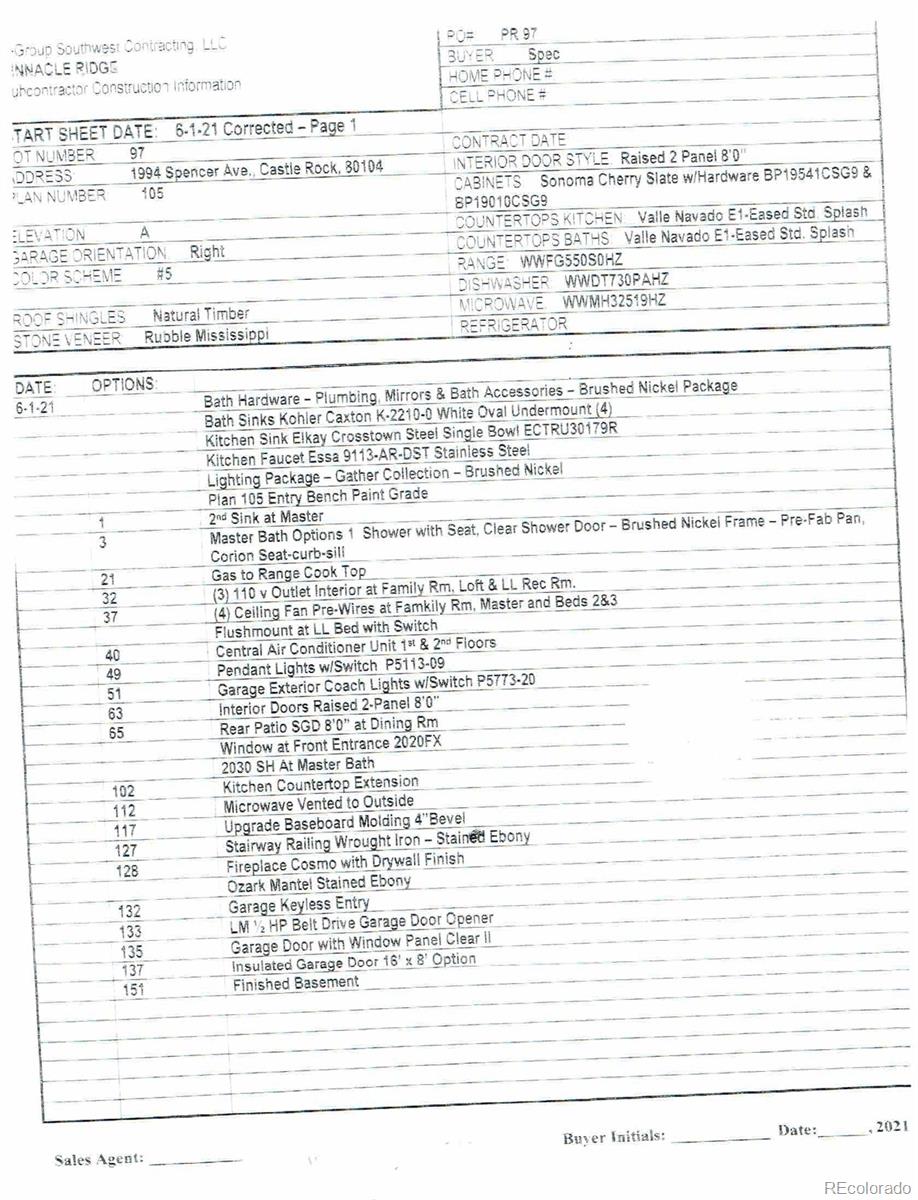 -Group Southwest Contracting, LLC
INNACLE RIDGE
ubcontractor Construction Information
PO# PR 97
BUYER Spec
HOME PHONE #
CELL PHONE #
TART SHEET DATE: 6-1-21 Corrected – Page 1
OT NUMBER 97
DDRESS 1994 Spencer Ave., Castle Rock, 80104
PLAN NUMBER 105
ELEVATION A
GARAGE ORIENTATION Right
COLOR SCHEME #5
ROOF SHINGLES Natural Timber
STONE VENEER Rubble Mississippi
CONTRACT DATE
INTERIOR DOOR STYLE Raised 2 Panel 8'0"
CABINETS Sonoma Cherry Slate w/Hardware BP19541CSG9 &
BP19010CSG9
COUNTERTOPS KITCHEN: Valle Navado E1-Eased Std. Splash
COUNTERTOPS BATHS: Valle Navado E1-Eased Std. Splash
RANGE: WWFG550S0HZ
DISHWASHER WWDT730PAHZ
MICROWAVE WWMH32519HZ
REFRIGERATOR
DATE: OPTIONS:
6-1-21 Bath Hardware – Plumbing, Mirrors & Bath Accessories – Brushed Nickel Package
Bath Sinks Kohler Caxton K-2210-0 White Oval Undermount (4)
Kitchen Sink Elkay Crosstown Steel Single Bowl ECTRU30179R
Kitchen Faucet Essa 9113-AR-DST Stainless Steel
Lighting Package – Gather Collection – Brushed Nickel
Plan 105 Entry Bench Paint Grade
1 2nd Sink at Master
3 Master Bath Options 1 Shower with Seat, Clear Shower Door – Brushed Nickel Frame – Pre-Fab Pan,
Corion Seat-curb-sill
21 Gas to Range Cook Top
32 (3) 110 v Outlet Interior at Family Rm, Loft & LL Rec Rm.
37 (4) Ceiling Fan Pre-Wires at Famkily Rm, Master and Beds 2&3
Flushmount at LL Bed with Switch
40 Central Air Conditioner Unit 1st & 2nd Floors
49 Pendant Lights w/Switch P5113-09
51 Garage Exterior Coach Lights w/Switch P5773-20
63 Interior Doors Raised 2-Panel 8'0"
65 Rear Patio SGD 8'0" at Dining Rm
Window at Front Entrance 2020FX
2030 SH At Master Bath
102 Kitchen Countertop Extension
112 Microwave Vented to Outside
117 Upgrade Baseboard Molding 4"Bevel
127 Stairway Railing Wrought Iron – Stained Ebony
128 Fireplace Cosmo with Drywall Finish
Ozark Mantel Stained Ebony
132 Garage Keyless Entry
133 LM ½ HP Belt Drive Garage Door Opener
135 Garage Door with Window Panel Clear II
137 Insulated Garage Door 16' x 8' Option
151 Finished Basement
Sales Agent: ____________ Buyer Initials: ____________ Date:______, 2021
REcolorado